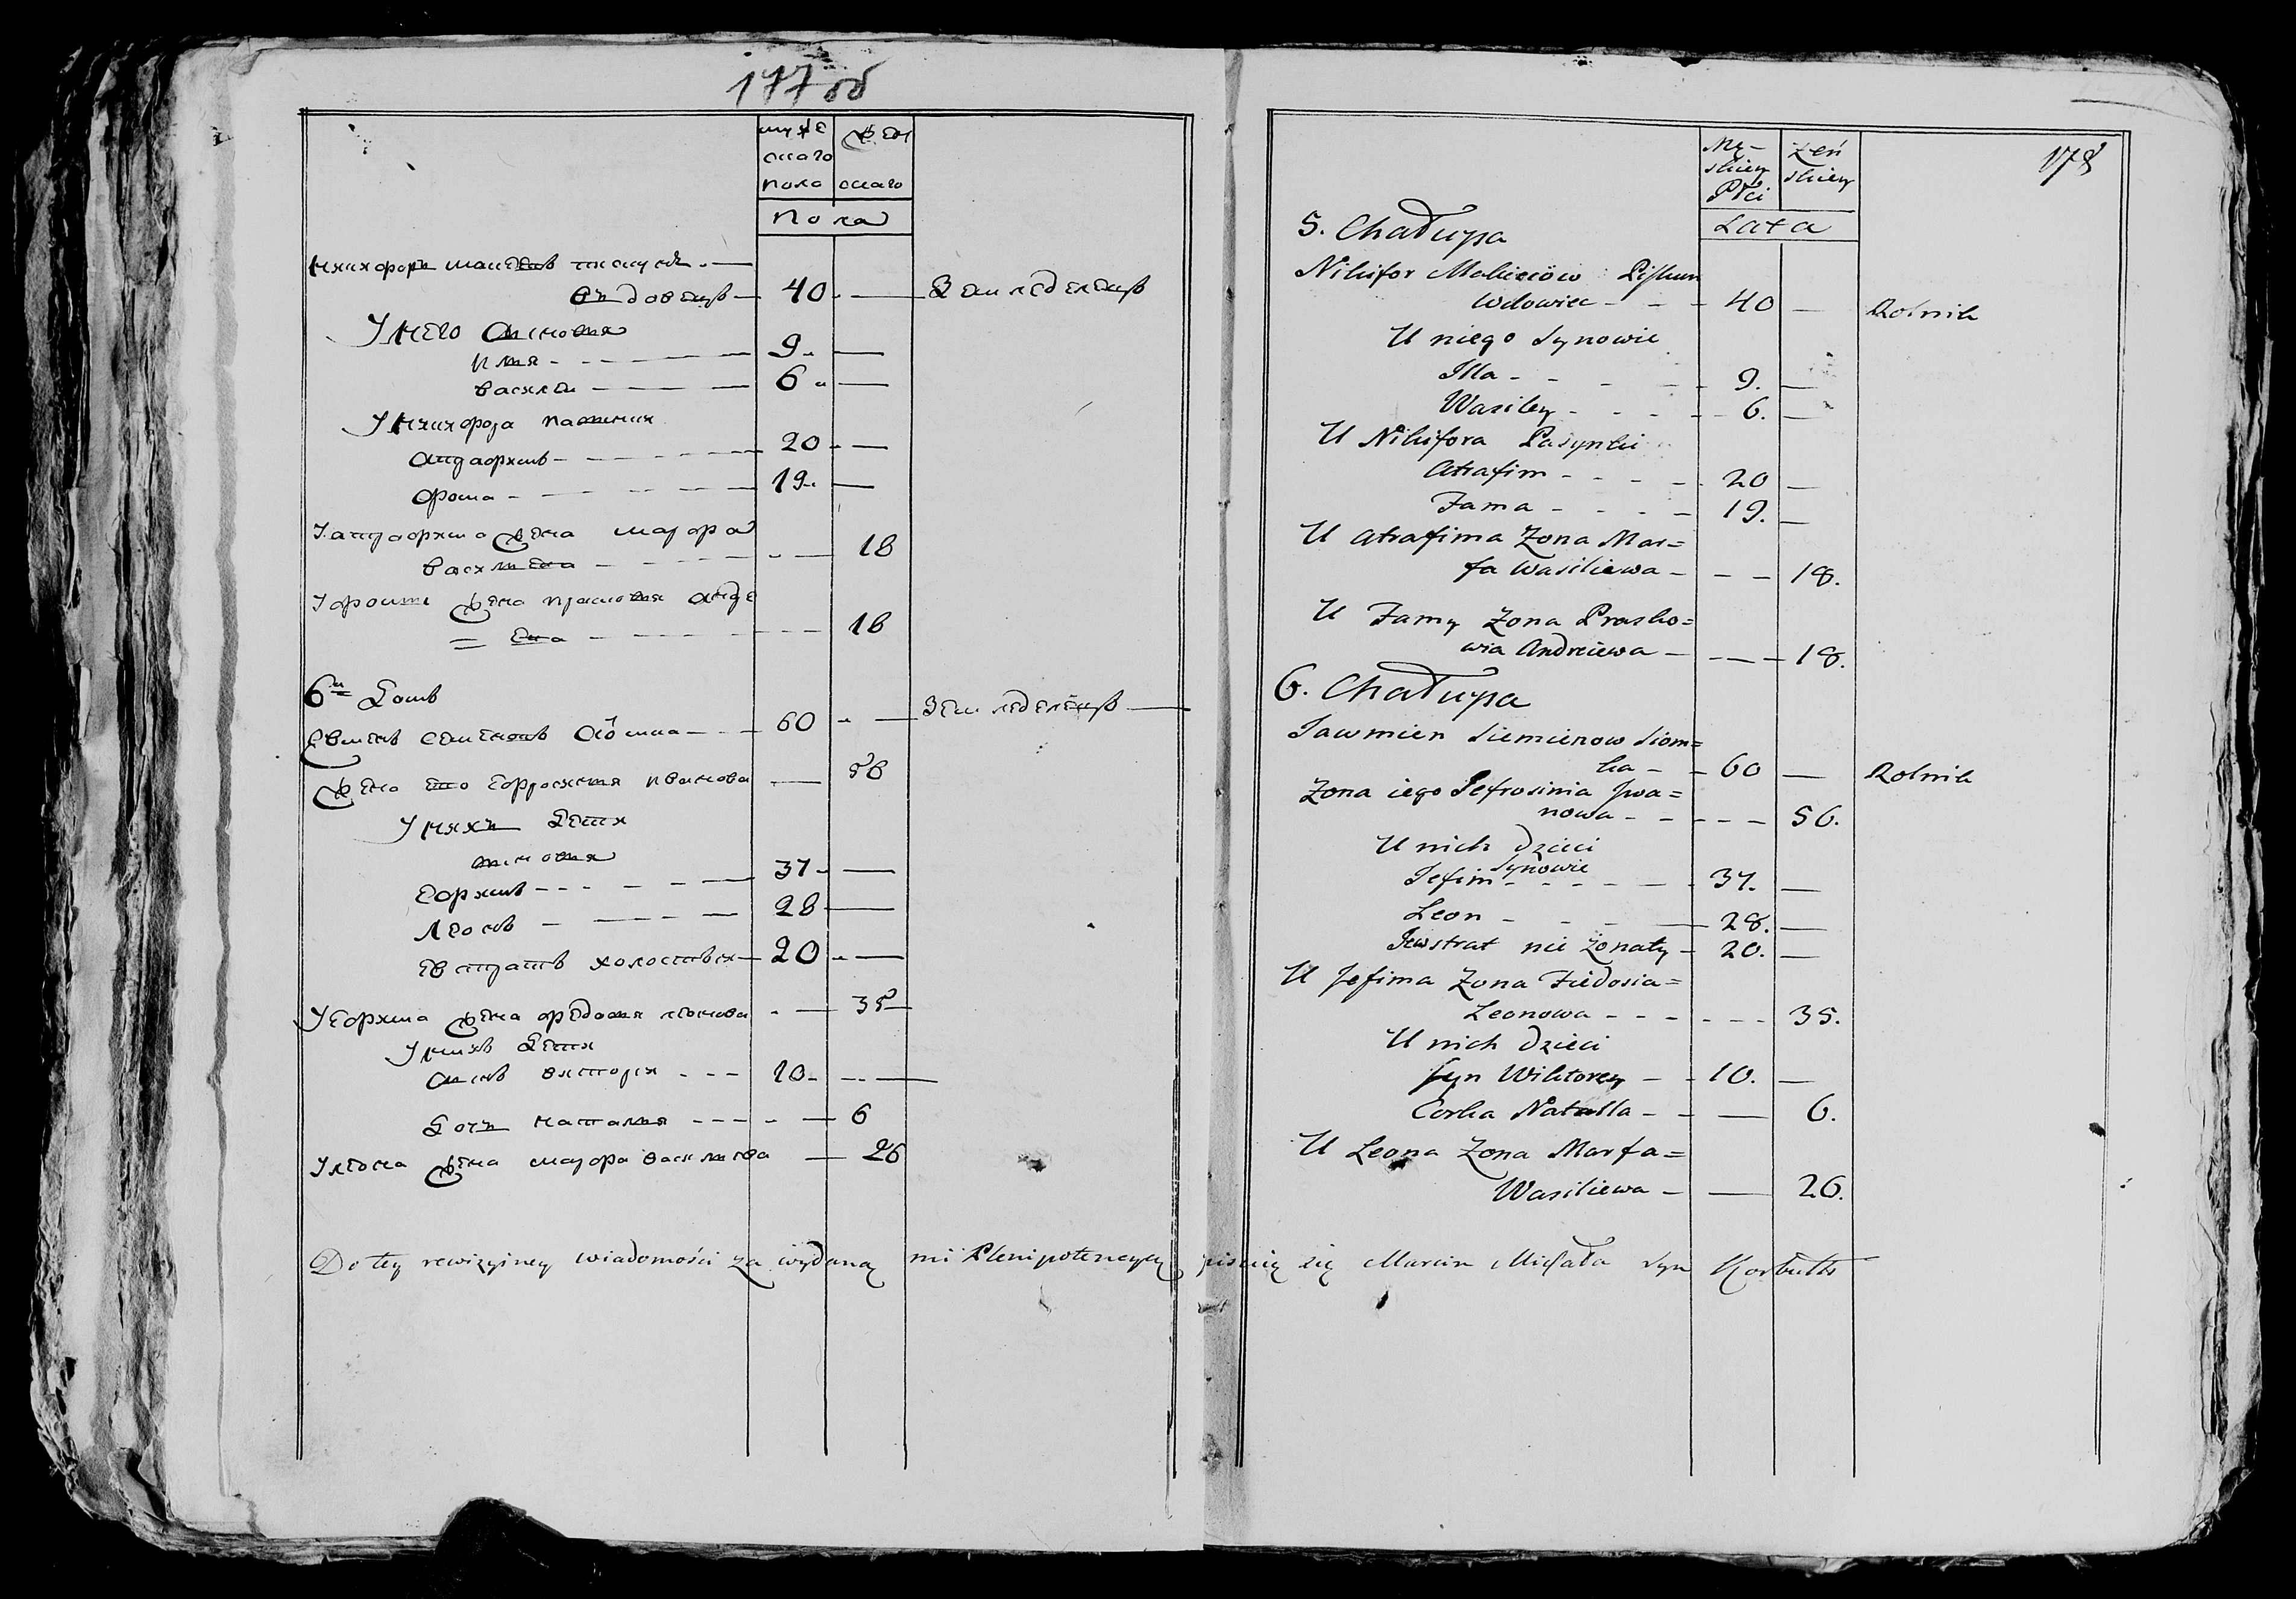 177 об
мужескаго пола
женскаго
пола
Никифоръ
вдовецъ — 40 — Земледелецъ
У него сыновья
Илья — 9 —
Василей — 6 —
У Никифора пасынки
20 —
Фома — 19 —
жена Марфа
Васильева — 18
У Фомы жена Прасковья Андре
= ева — 18
6й Домъ
Семеновъ Сёмка — 60 — Земледелецъ —
Жена его Ефросинья Иванова — 56
У нихъ дети
сыновья
Ефимъ — 37 —
Леонъ — 28 —
Евстратъ холостый — 20 —
У Ефима жена Федосья Леонова — 35
У нихъ дети
Сынъ Викторей — 10 —
Дочь Наталья — 6
У Леона жена Марфа Васильева — 26
178
Mę-
skiey
Płci
Żeń
skiey
Lata
5. Chałupa
Nikifor
Wdowiec — 40 — Rolnik
U niego Synowie
Illa — 9. —
Wasiley — 6. —
U Nikifora Pasynki
Atrafim — 20 —
Fama — 19. —
U Atrafima Żona Mar=
fa Wasiliewa — 18.
U Famy Żona Prasko=
wia Andreiewa — 18.
6. Chałupa
Jawmien Siemienow Siom=
ka — 60 — Rolnik
Żona iego Jefrosinia Iwa=
nowa — 56.
U nich Dzieci
Synowie
Jefim — 37. —
Leon — 28. —
Jewstrat nie żonaty — 20. —
U Jefima Żona Fiedosia=
Leonowa — 35.
U nich Dzieci
Syn Wiktorey — 10. —
Corka Natalla — 6.
U Leona Żona Marfa=
Wasiliewa — 26.
Do tey rewizyiney wiadomości za wydaną mi Plenipotencyą pisuię się Marcin Michała Syn Korbutt